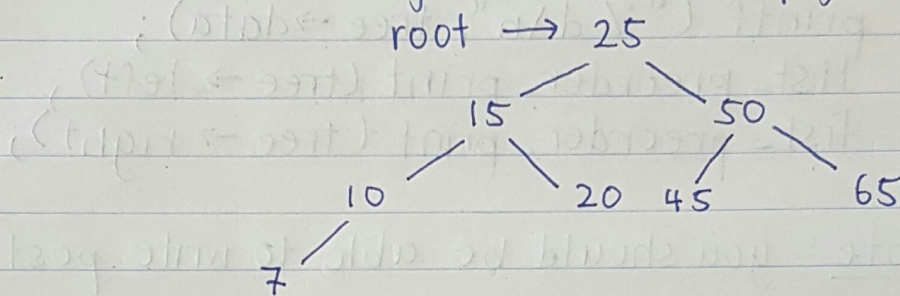 root → 25
15 50
10 20 45 65
7